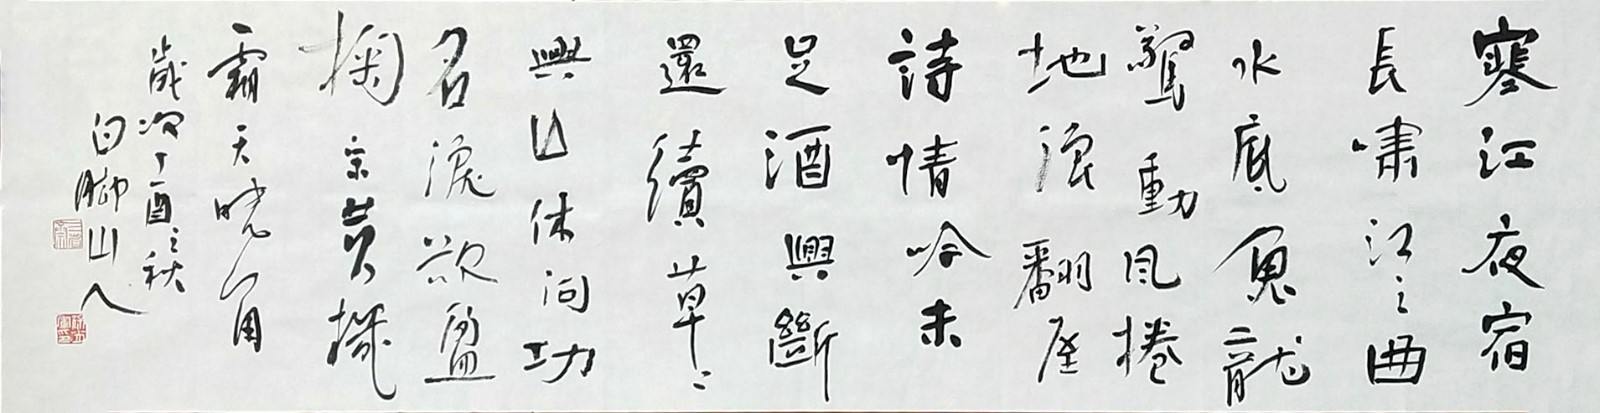 寒江夜宿
長嘯江之曲
水底魚龍
驚動風捲
地浪翻屋
詩情吟未
足酒興斷
還續草〻
興亡休问功
名淚欲盈
掬宋黃機
霜天曉角
歲次丁酉之秋
白腳山人